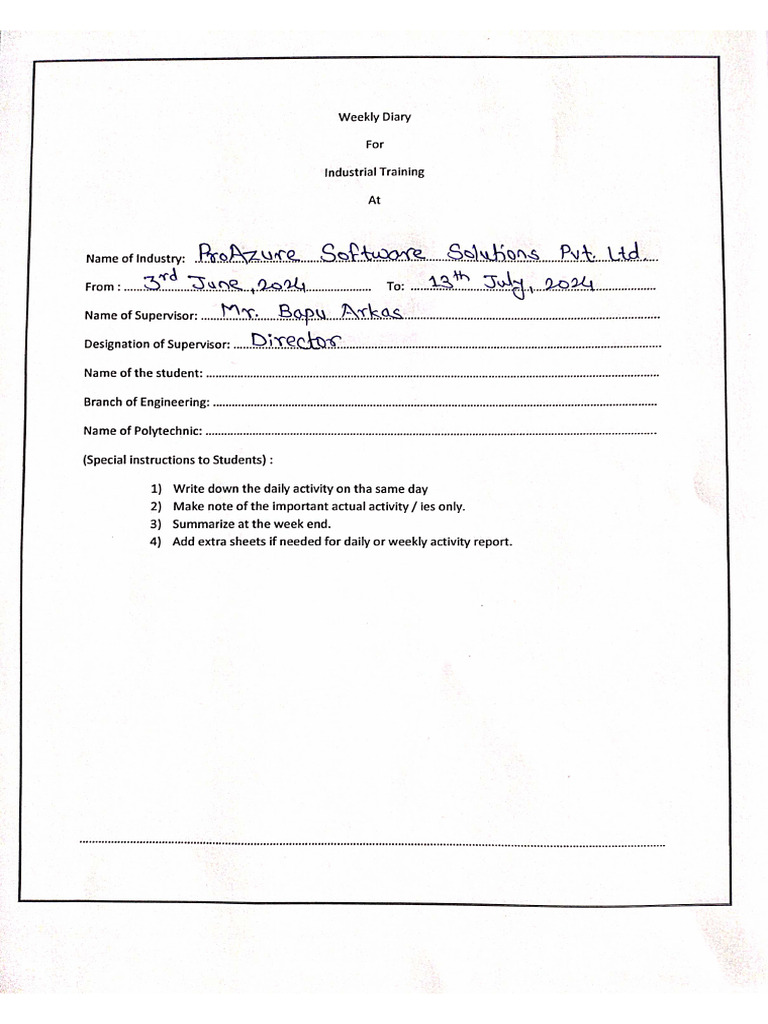 Weekly Diary
For
Industrial Training
At
Name of Industry: ProAzure Software Solutions Pvt. Ltd.
From : 3rd June, 2024 To: 13th July, 2024
Name of Supervisor: Mr. Bapu Arkas
Designation of Supervisor: Director
Name of the student:
Branch of Engineering:
Name of Polytechnic:
(Special instructions to Students) :
1) Write down the daily activity on tha same day
2) Make note of the important actual activity / ies only.
3) Summarize at the week end.
4) Add extra sheets if needed for daily or weekly activity report.